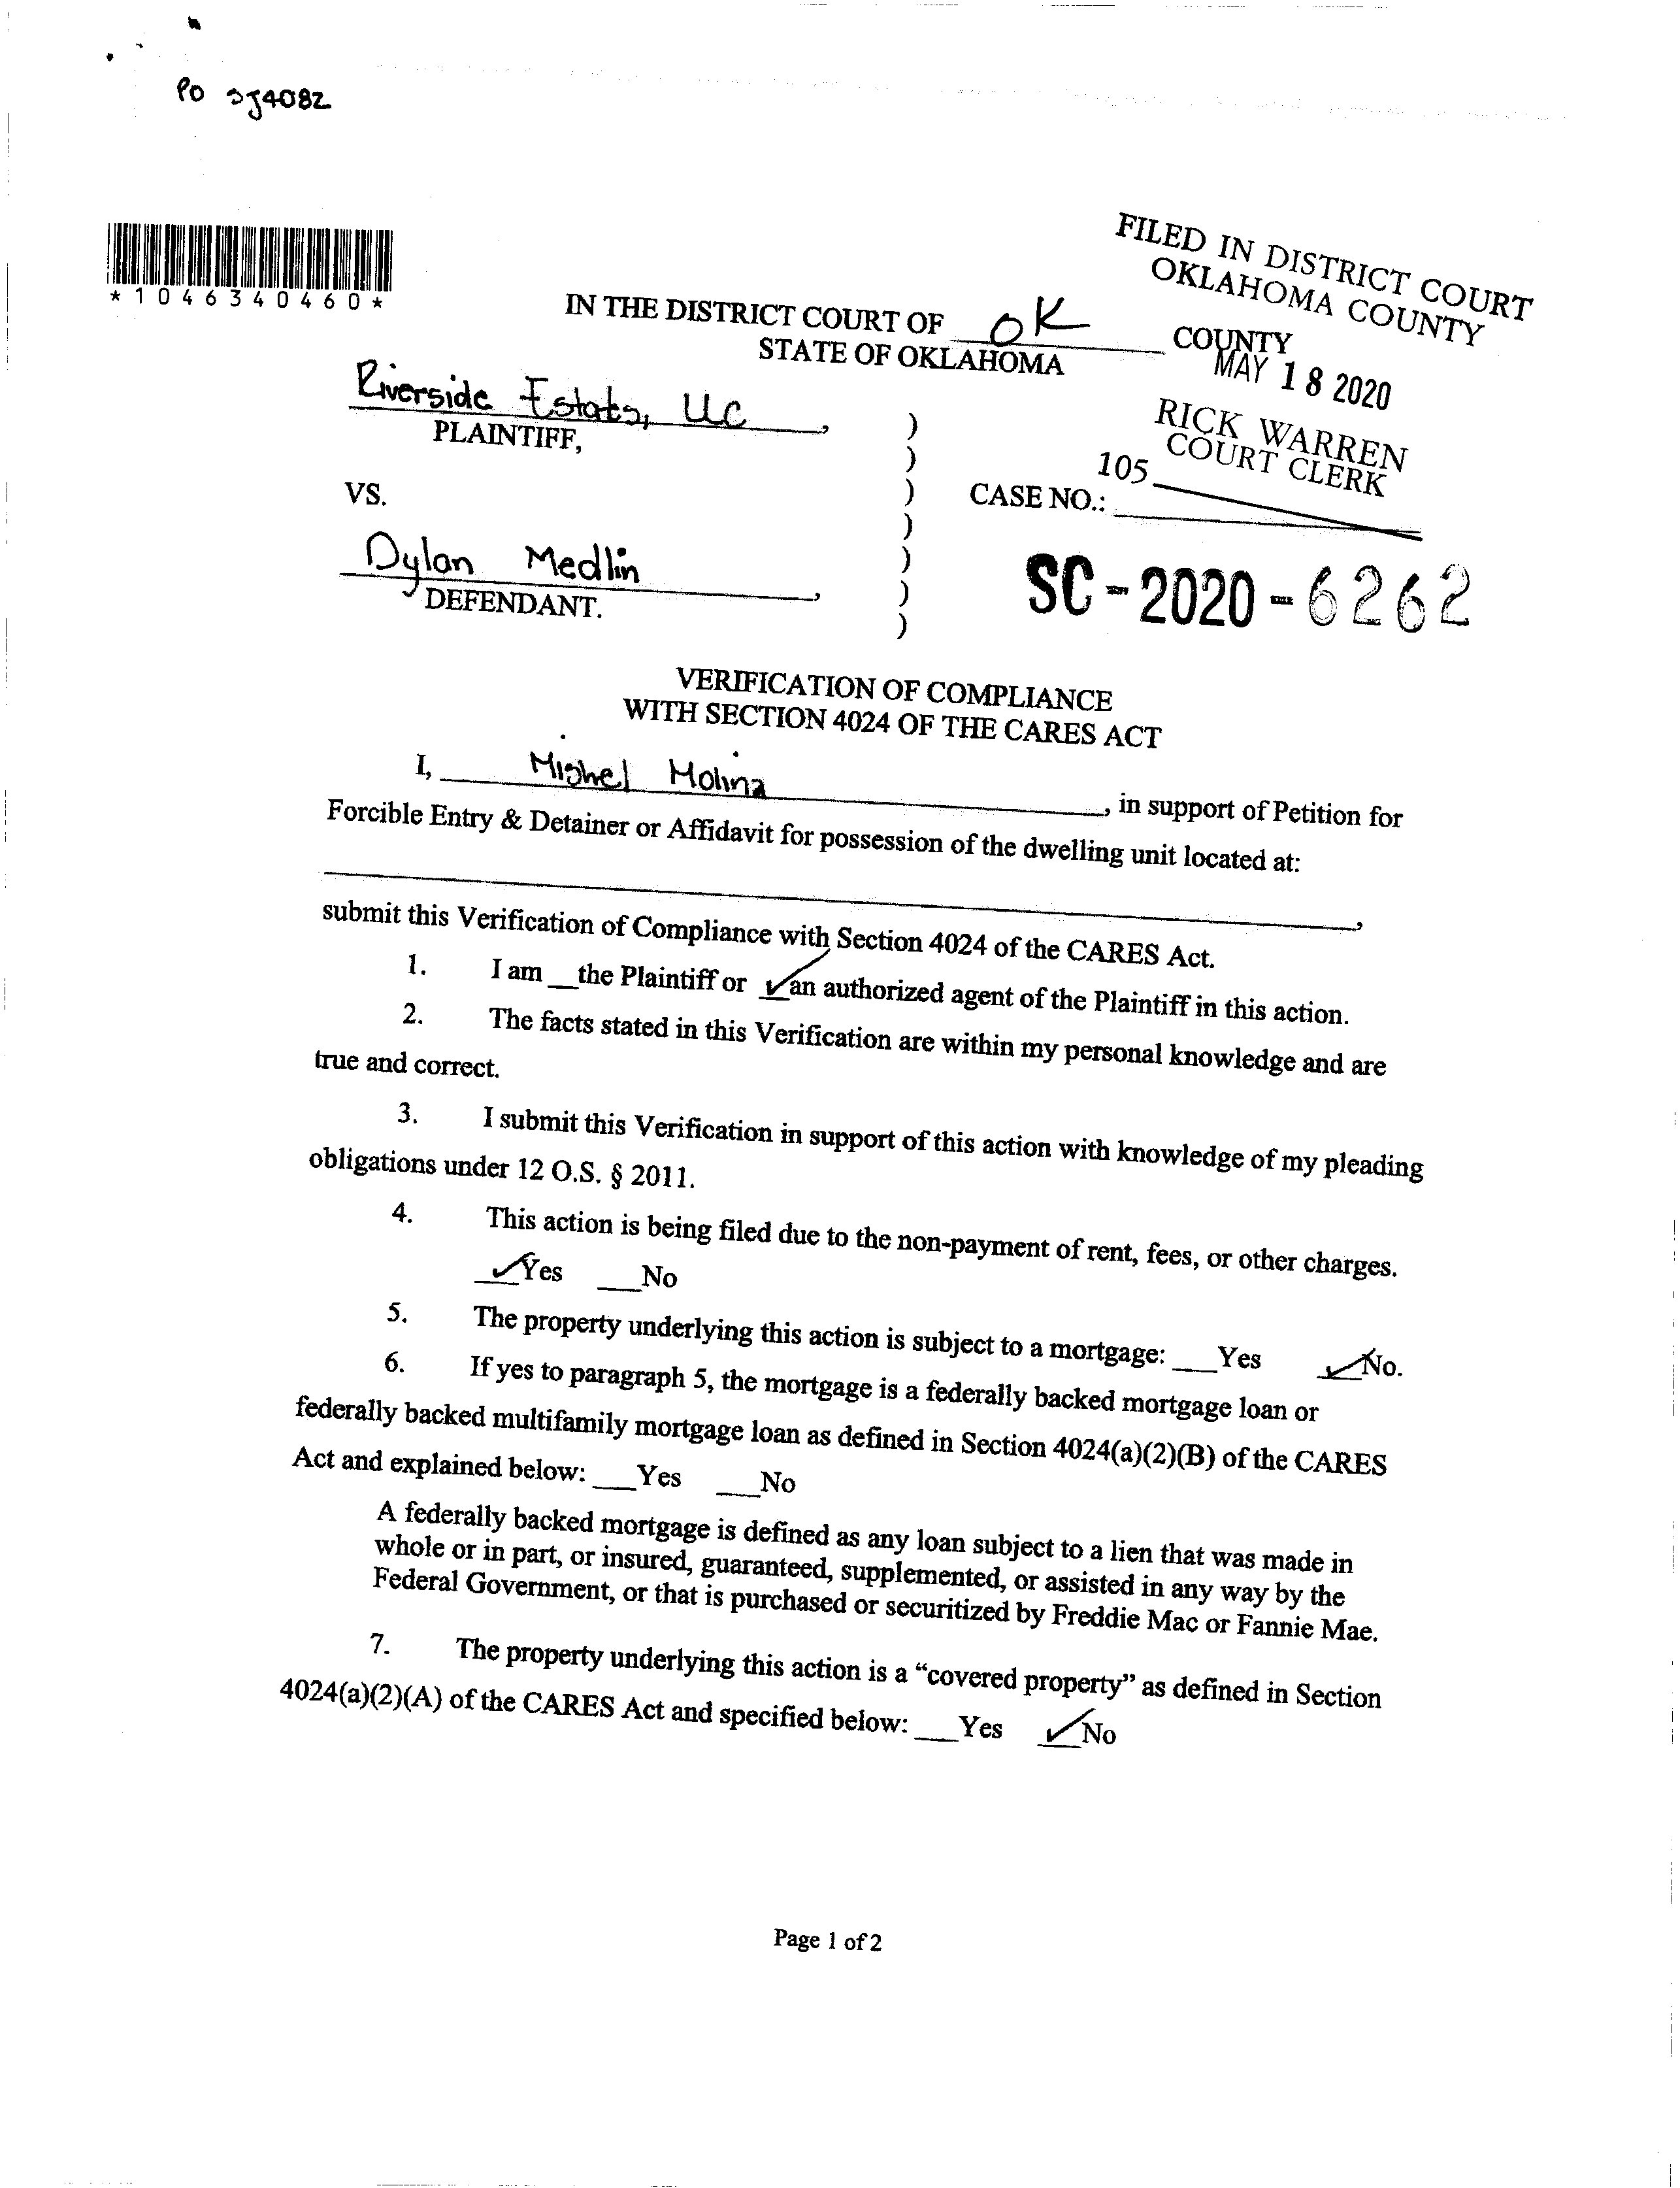 PO SJ4082
*1046340460*
FILED IN DISTRICT COURT
OKLAHOMA COUNTY
MAY 18 2020
RICK WARREN
COURT CLERK
105
IN THE DISTRICT COURT OF OK COUNTY
STATE OF OKLAHOMA
Riverside Estates, LLC,
PLAINTIFF,
VS.
CASE NO.:
SC-2020-6262
Dylan Medlin,
DEFENDANT.
)
)
)
)
)
)
)
VERIFICATION OF COMPLIANCE
WITH SECTION 4024 OF THE CARES ACT
I, Mishel Molina, in support of Petition for
Forcible Entry & Detainer or Affidavit for possession of the dwelling unit located at:
,
submit this Verification of Compliance with Section 4024 of the CARES Act.
1. I am __the Plaintiff or ✓an authorized agent of the Plaintiff in this action.
2. The facts stated in this Verification are within my personal knowledge and are
true and correct.
3. I submit this Verification in support of this action with knowledge of my pleading
obligations under 12 O.S. § 2011.
4. This action is being filed due to the non-payment of rent, fees, or other charges.
✓Yes ___No
5. The property underlying this action is subject to a mortgage: ___Yes ✓No.
6. If yes to paragraph 5, the mortgage is a federally backed mortgage loan or
federally backed multifamily mortgage loan as defined in Section 4024(a)(2)(B) of the CARES
Act and explained below: ___Yes ___No
A federally backed mortgage is defined as any loan subject to a lien that was made in
whole or in part, or insured, guaranteed, supplemented, or assisted in any way by the
Federal Government, or that is purchased or securitized by Freddie Mac or Fannie Mae.
7. The property underlying this action is a “covered property” as defined in Section
4024(a)(2)(A) of the CARES Act and specified below: ___Yes ✓No
Page 1 of 2